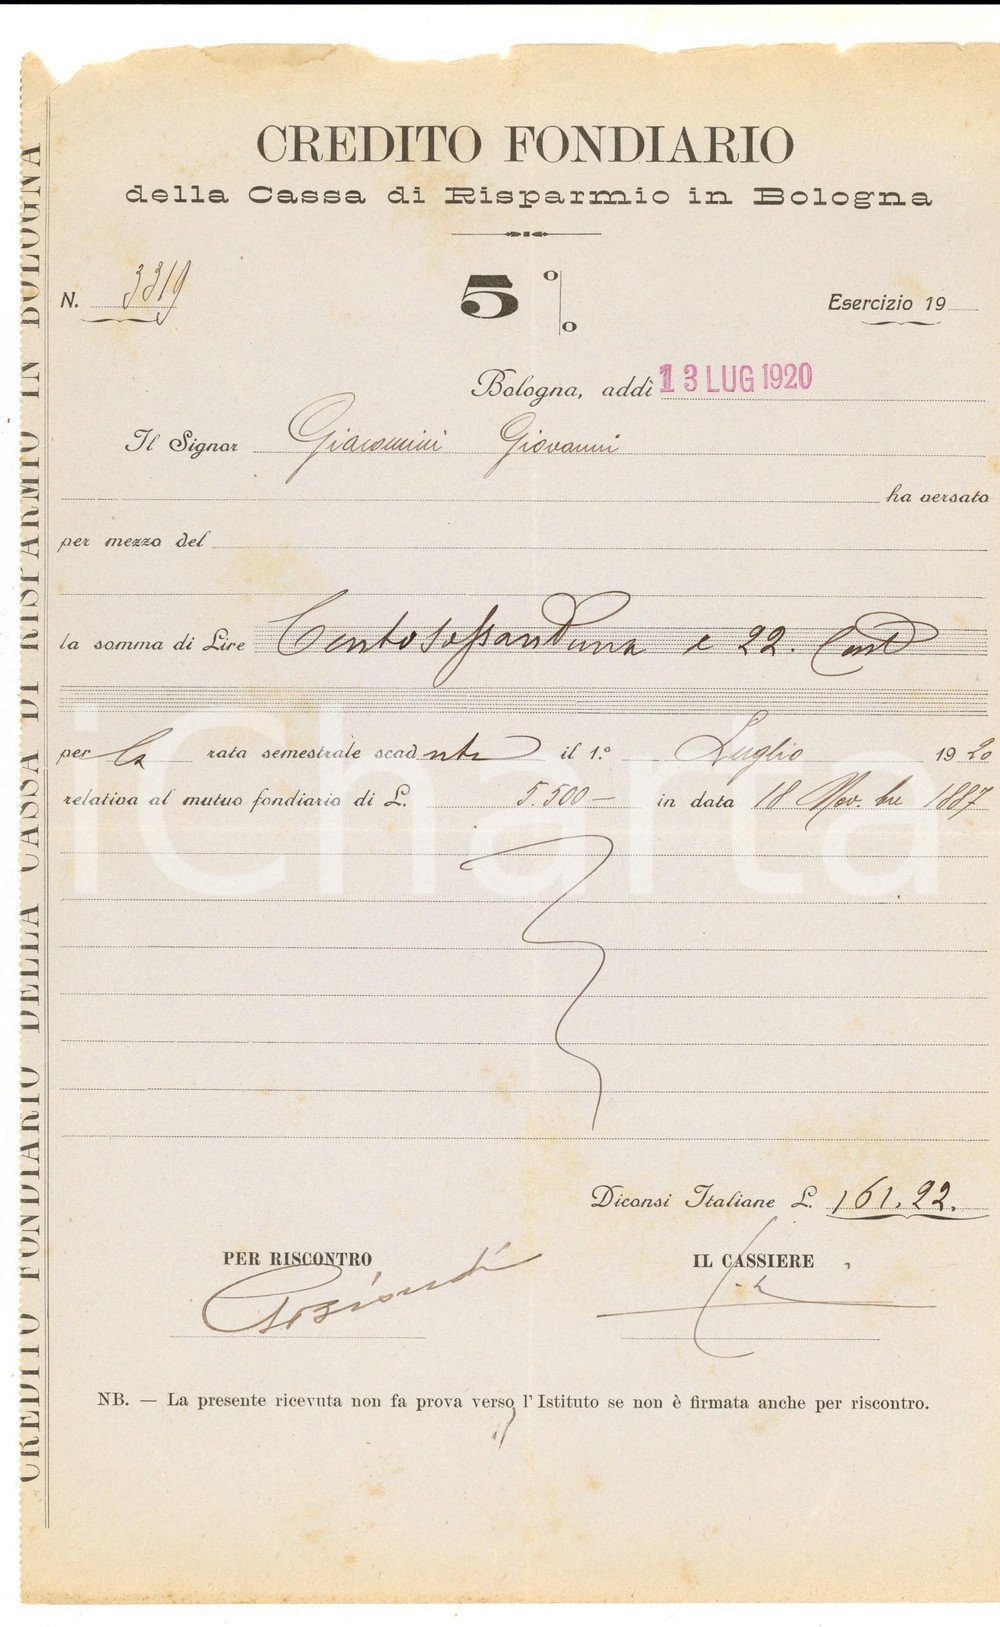 CREDITO FONDIARIO
della Cassa di Risparmio in Bologna
N. 3319
5 %
Esercizio 19
Bologna, addì 13 LUG 1920
Il Signor Giacomini Giovanni
ha versato
per mezzo del
la somma di Lire Centosessantuna e 22. Cent
per la rata semestrale scadente il 1.° Luglio 1920
relativa al mutuo fondiario di L. 5.500 — in data 18 Nov.bre 1887
Diconsi Italiane L. 161.22.
PER RISCONTRO
IL CASSIERE
NB. — La presente ricevuta non fa prova verso l'Istituto se non è firmata anche per riscontro.
CREDITO FONDIARIO DELLA CASSA DI RISPARMIO IN BOLOGNA
iCharta